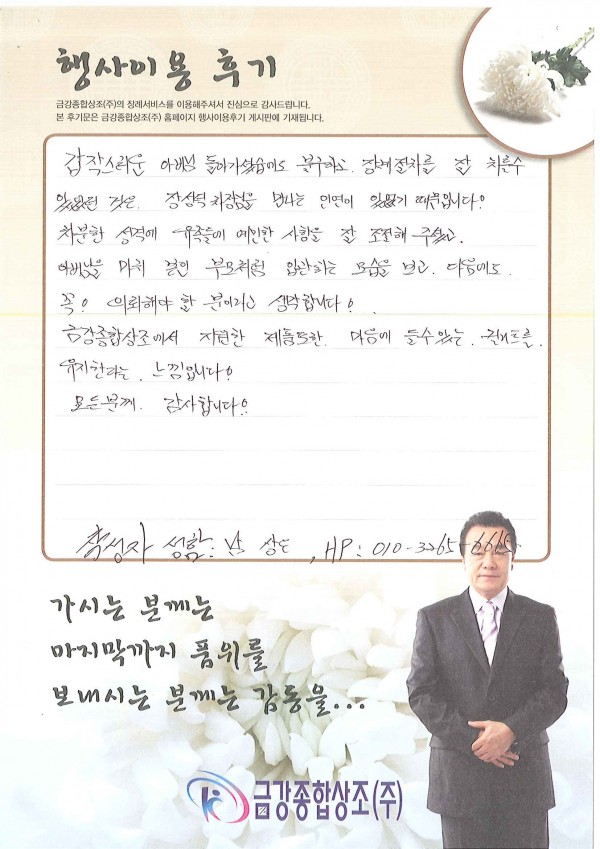 행사이용 후기
금강종합상조(주)의 장례서비스를 이용해주셔서 진심으로 감사드립니다.
본 후기문은 금강종합상조(주) 홈페이지 행사이용후기 게시판에 기재됩니다.
갑작스러운 아버님 돌아가셨음에도 불구하고. 장례절차를 잘 치를수
있었던 것은. 장성덕 차장님을 만나는 인연이 있었기 때문입니다.
차분한 성격에 유족들에 예민한 사항을 잘 조절해 주셨고.
아버님을 마치 본인 부모처럼 입관하는 모습을 보고. 다음에도.
꼭? 의뢰해야 할 분이라고 생각합니다?
금강종합상조에서 지원한 제품또한. 다음에 쓸수있는. 퀄리프를.
유지한다는. 느낌입니다?
모든분께. 감사합니다?
작성자 성함: 남 상도 , HP: 010-3265-6615
가시는 분께는
마지막까지 품위를
보내시는 분께는 감동을...
금강종합상조(주)